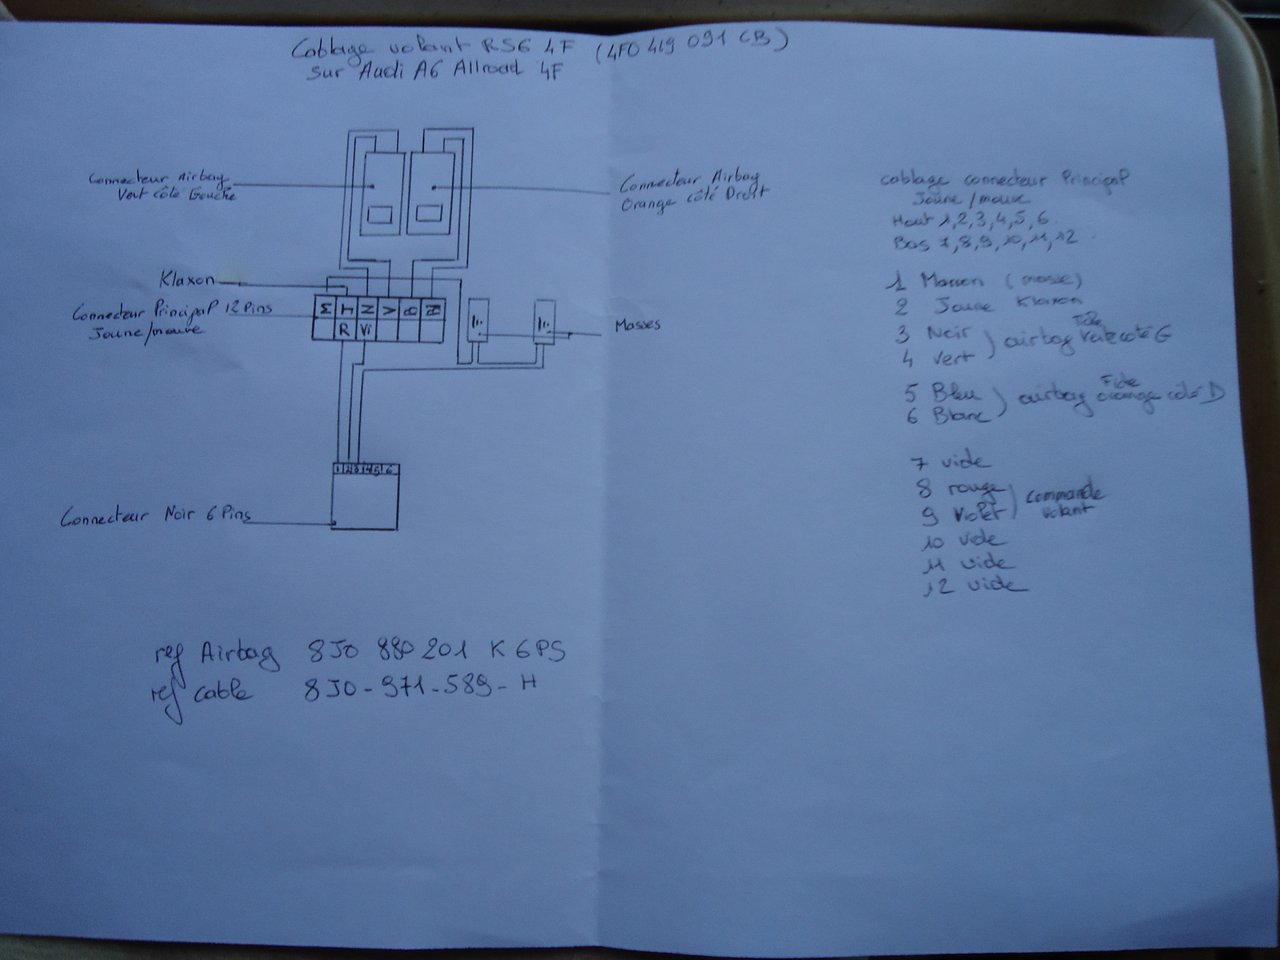 Cablage volant RS6 4F (4F0 419 091 CB)
sur Audi A6 Allroad 4F
Connecteur Airbag
Vert côté Gauche
Connecteur Airbag
Orange côté Droit
Klaxon
Connecteur Principal 12 Pins
Jaune/mauve
M J N V B
R Vi
Masses
1 2 3 4 5 6
Connecteur Noir 6 Pins
ref Airbag 8J0 880 201 K 6PS
ref cable 8J0-971-589-H
cablage connecteur Principal
Jaune/mauve
Haut 1,2,3,4,5,6
Bas 7,8,9,10,11,12
1 Marron (masse)
2 Jaune Klaxon
3 Noir
4 Vert
) airbag Fiche Verte coté G
5 Bleu
6 Blanc
) airbag Fiche orange côté D
7 vide
8 rouge
9 Violet
) Commande volant
10 vide
11 vide
12 vide